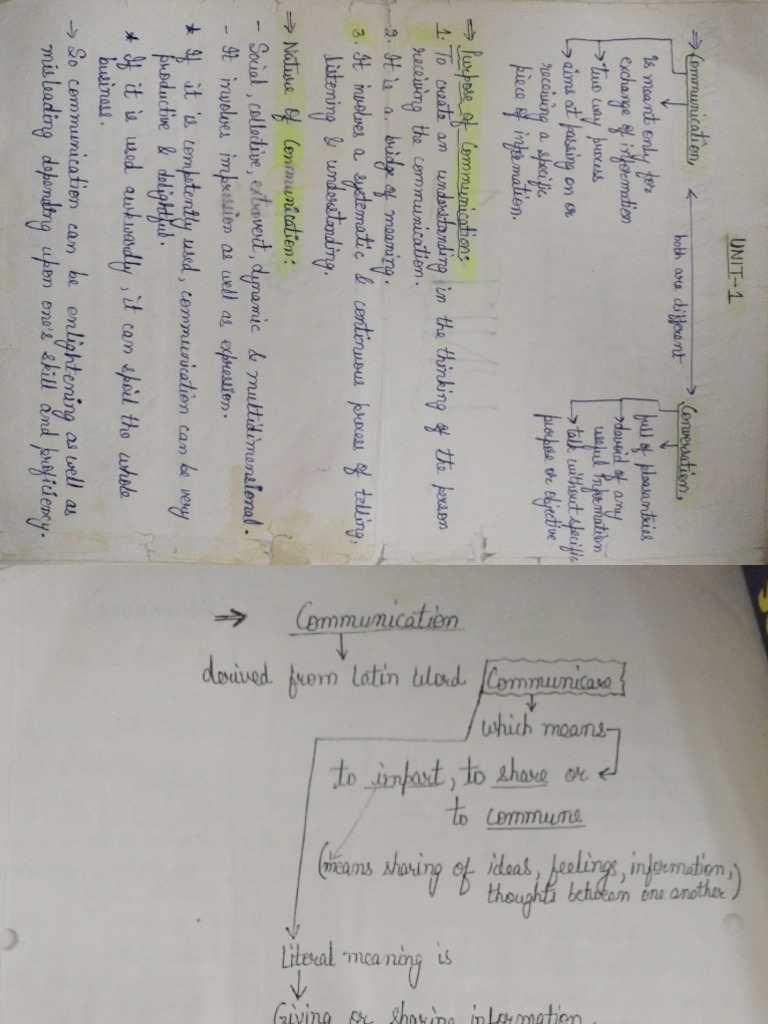 UNIT-1
⇒ Communication, ← both are different → Conversation,
is meant only for
exchange of information
→ two way process
→ aims at passing on or
receiving a specific
piece of information.
full of pleasantries
→ devoid of any
useful Information
→ talk without specific
purpose or objective
⇒ Purpose of Communication:
1. To create an understanding in the thinking of the person
receiving the communication.
2. It is a bridge of meaning.
3. It involves a systematic & continuous process of telling,
listening & understanding.
⇒ Nature of Communication:
- Social, collective, extrovert, dynamic & multidimensional.
- It involves impression as well as expression.
* If it is competently used, communication can be very
productive & delightful.
* If it is used awkwardly, it can spoil the whole
business.
→ So communication can be enlightening as well as
misleading depending upon one's skill and proficiency.
⇒ Communication
derived from Latin Word Communicare
which means
to impart, to share or
to commune
(means sharing of ideas, feelings, information,
thoughts between one another)
Literal meaning is
Giving or sharing information.